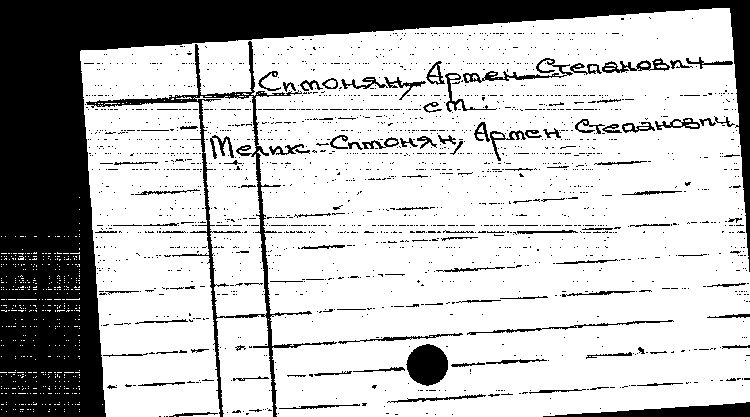 Симонян, Армен Степанович
см.:
Мелик-Симонян, Армен Степанович